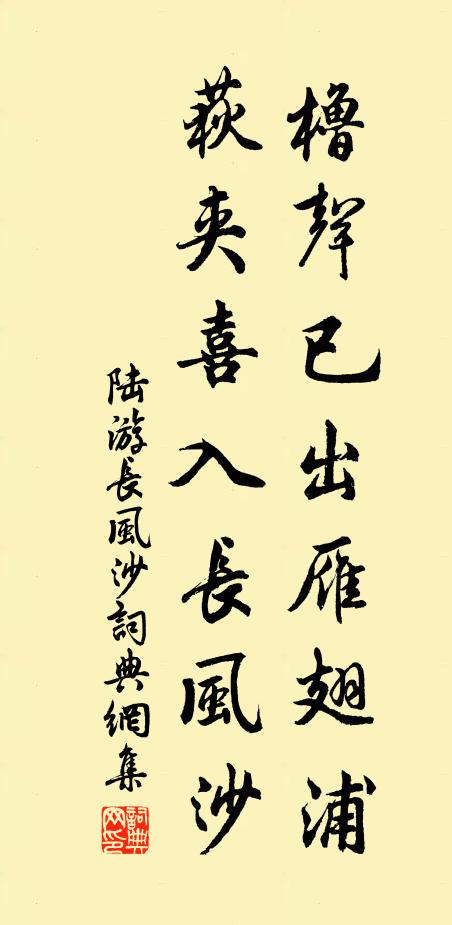 櫓聲已出雁翅浦
荻夾喜入長風沙
陆游長風沙詞典網集
詞典網印